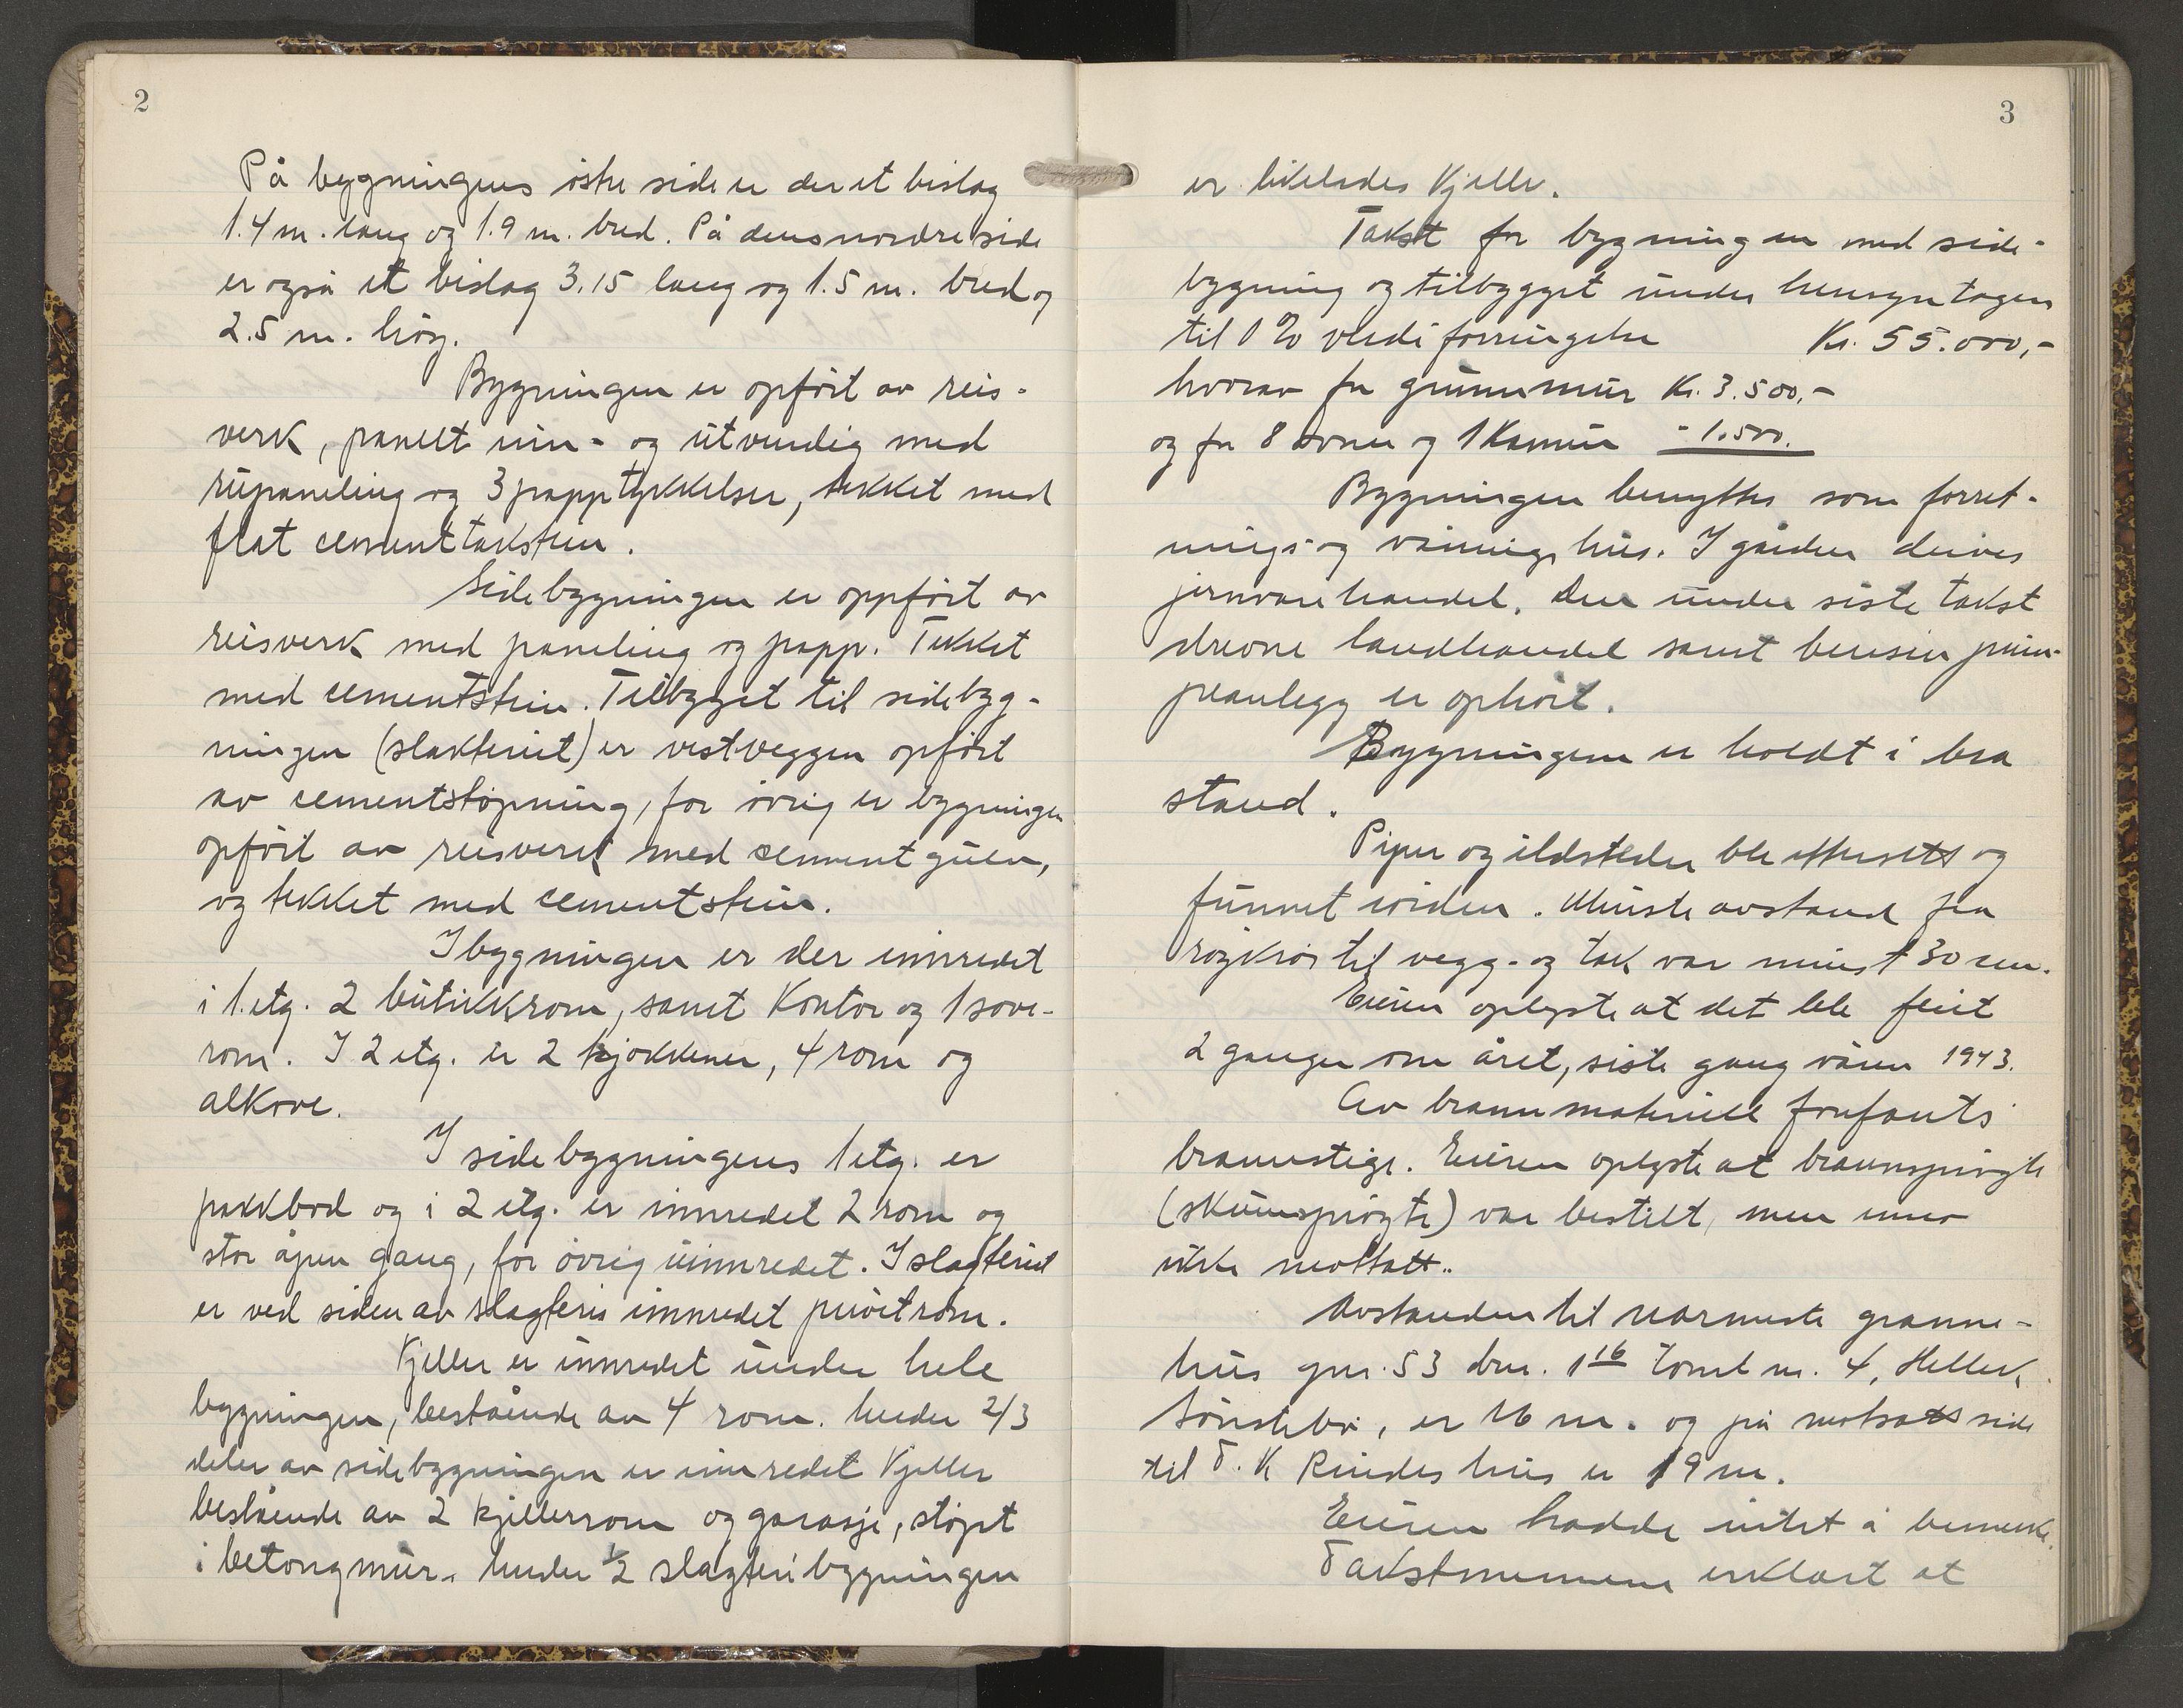 2
På bygningens östre side er der et bislag
1.4 m. lang og 1.9 m. bred. På dens nordre side
er også et bislag 3.15 lang og 1.5 m. bred og
2.5 m. höy.
Bygningen er opfört av reis-
verk, panelt inn- og utvendig med
rupaneling og 3 papptykkelser, tekket med
flat cementtakstein.
Sidebygningen er oppfört av
reisverk med paneling og papp. Tekket
med cementstein. Tilbygget til sidebyg-
ningen (slakteriet) er vestveggen opfört
av cementstöpning, for övrig er bygningen
opfört av reisverk med cement gulv,
og tekket med cementstein.
I bygningen er der innredet
i 1. etg. 2 butikkrom, samt kontor og 1 sove-
rom. I 2 etg. er 2 kjökkener, 4 rom og
alkove.
I sidebygningens 1 etg. er
pakkbod og i 2 etg. er innredet 2 rom og
stor åpen gang, for övrig uinnredet. I slagteriet
er ved siden av slagteris innredet privitrom.
Kjeller er innredet under hele
bygningen, bestående av 4 rom. Under 2/3
deler av sidebygningen er innredet kjeller
bestående av 2 kjellerrom og garasje, stöpt
i betongmur. Under 1/2 slagteribygningen
3
er likeledes kjeller.
Takst for bygningen med side-
bygning og tilbygget under hensyn tagen
til 0 % verdiforringelse Kr. 55.000,-
hvorav for grunnmur Kr. 3.500.-
og for 8 ovner og 1 kamin " 1.500.
Bygningen benyttes som forret-
nings og våningshus. I gården drives
jernvarehandel. Den under siste takst
drevne landhandel samt bensin pum-
peanlegg er ophört.
Bygningen er holdt i bra
stand.
Piper og ildsteder ble eftersett og
funnet iorden. Minste avstand fra
röykrör til vegg- og tak var minst 30 cm.
Eieren oplyste at det ble feiet
2 ganger om året, siste gang våren 1943.
Av brannmateriell forefants
brannstige. Eieren oplyste at brannspröyte
(skumspröyte) var bestilt, men enno
ikke mottatt.
Avstanden til nærmeste granne-
hus gnr. 53 bnr. 1 16 tomt nr. 4, Hellek
Sönstebö, er 16 m. og på motsatt side
til T. K Rindes hus er 19 m.
Eieren hadde intet å bemerke.
Takstmennene erklært at